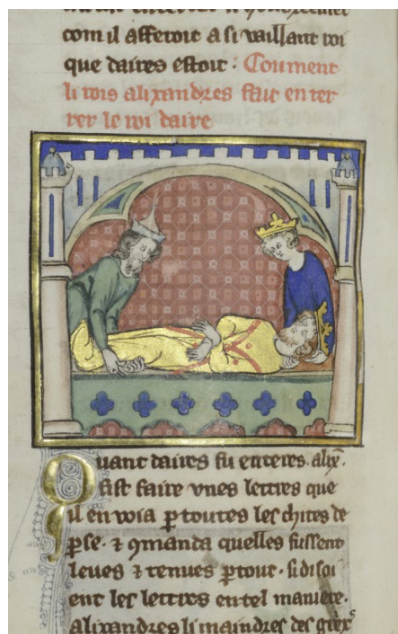 com il afferoit a si vaillant roi
que daires estoit : Coument
li rois alixandres fait enter
rer le roi daire
Quant daires fu enteres. alix̄.
fist faire vnes lettres que
il en voia ꝑ toutes les chites de
ꝑse. ⁊ ꝯmanda quelles fussent
leues ⁊ tenues ꝑtout. si disoi
ent les lettres en tel maniere.
Alixandres li maindres des grex